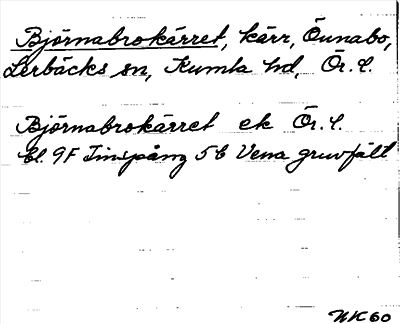 Björnabrokärret, kärr, Öunabo,
Lerbäcks sn, Kumla hd, Ör. l.
Björnabrokärret ek Ör. l.
El. 9F Finspång 5 C Vena gruvfält
NK60